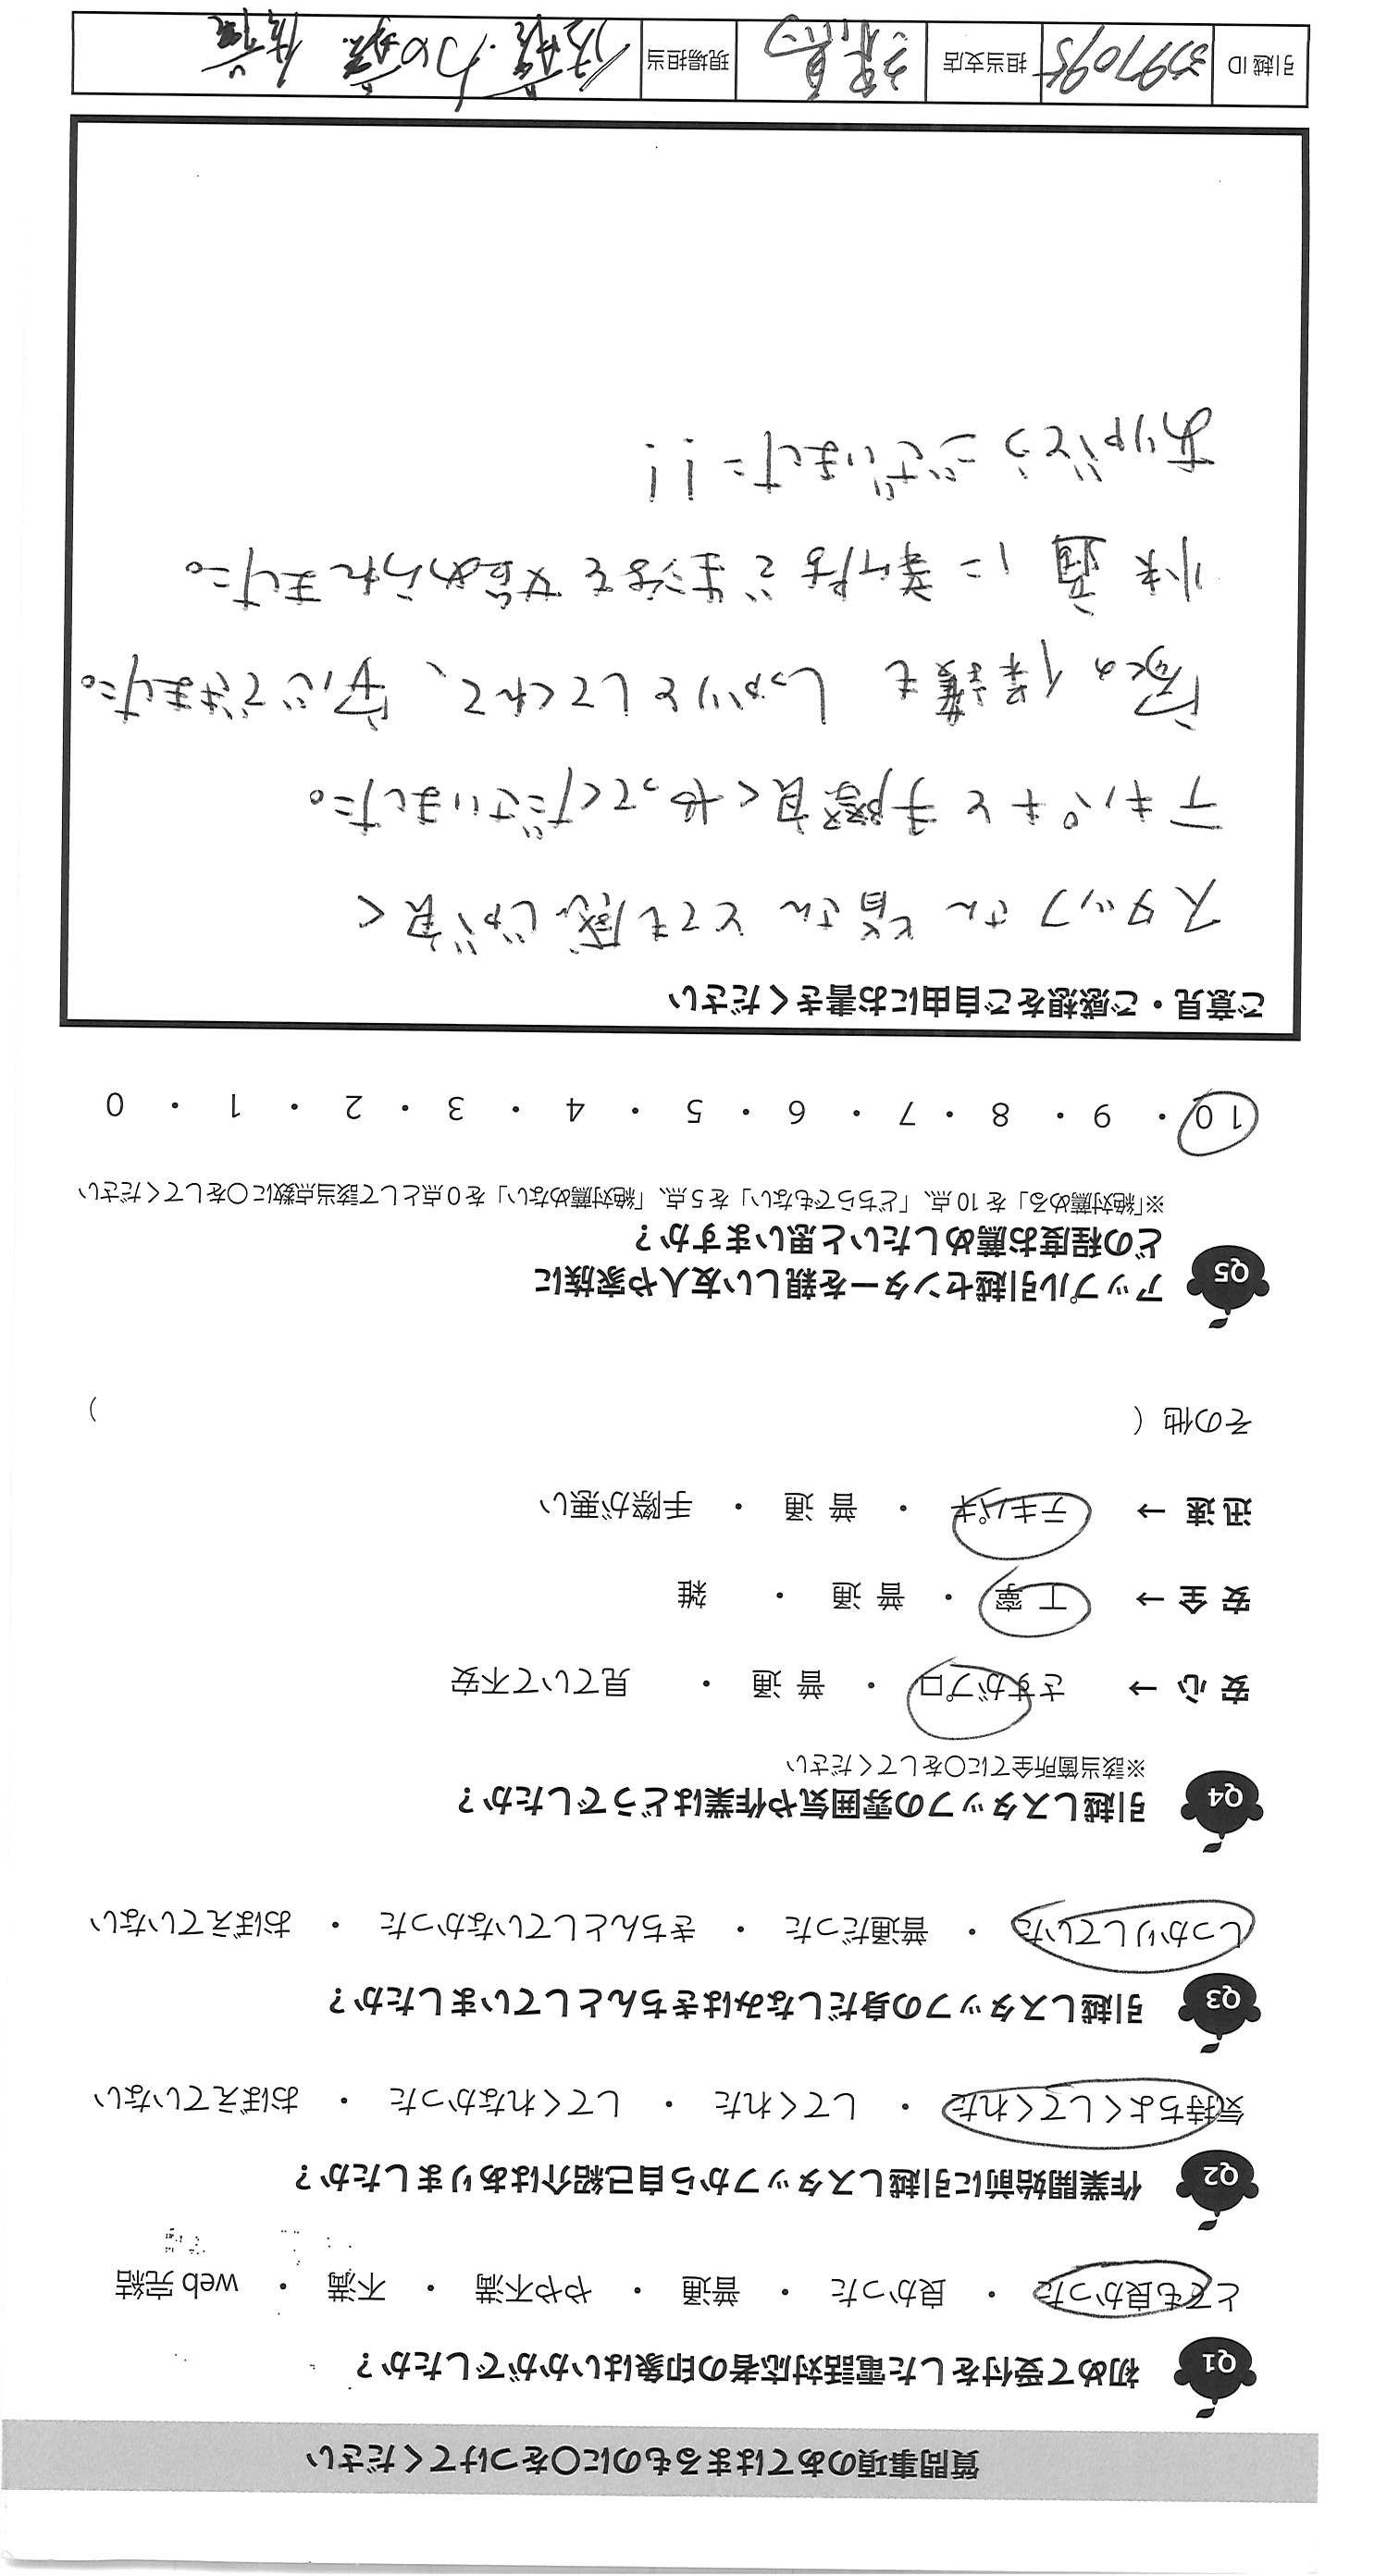 質問事項のあてはまるものに〇をつけてください
Q1 初めて受付をした電話対応者の印象はいかがでしたか？
とても良かった ・ 良かった ・ 普通 ・ やや不満 ・ 不満 ・ web 完結
Q2 作業開始前に引越しスタッフから自己紹介はありましたか？
気持ちよくしてくれた ・ してくれた ・ してくれなかった ・ おぼえていない
Q3 引越しスタッフの身だしなみはきちんとしていましたか？
しっかりしていた ・ 普通だった ・ きちんとしていなかった ・ おぼえていない
Q4 引越しスタッフの雰囲気や作業はどうでしたか？
※該当箇所全てに〇をしてください
安 心 → さすがプロ ・ 普 通 ・ 見ていて不安
安 全 → 丁 寧 ・ 普 通 ・ 雑
迅 速 → テキパキ ・ 普 通 ・ 手際が悪い
その他（ ）
Q5 アップル引越センターを親しい友人や家族に
どの程度お薦めしたいと思いますか？
※「絶対薦める」を 10 点、「どちらでもない」を 5 点、「絶対薦めない」を 0 点として該当点数に〇をしてください
10 ・ 9 ・ 8 ・ 7 ・ 6 ・ 5 ・ 4 ・ 3 ・ 2 ・ 1 ・ 0
ご意見・ご感想をご自由にお書きください
スタッフさん 皆さん とても感じが良く
テキパキと手際良くやってくださいました。
家の保護も しっかりとしてくれて、安心できました。
快適に新居で生活を始められました。
ありがとうございました!!
引越 ID 3971095 担当支店 練馬 現場担当